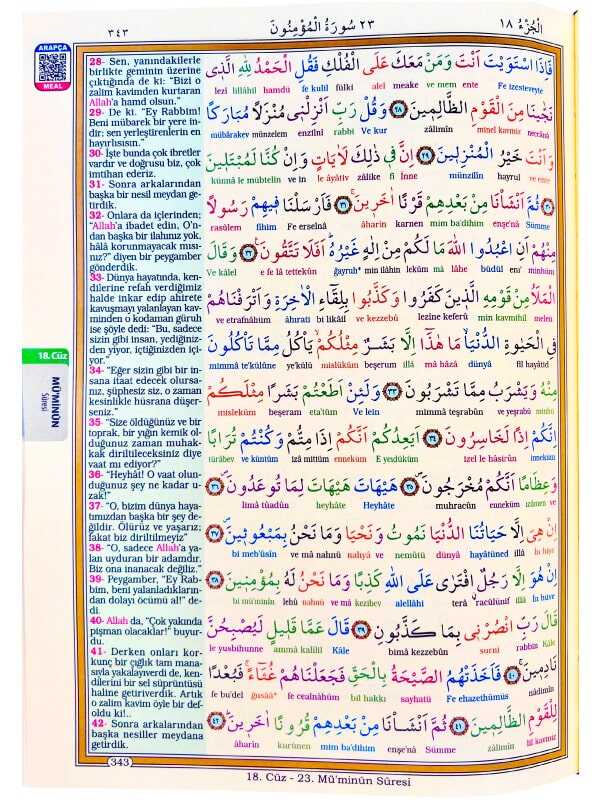 ٣٤٣
٢٣ سُورَةُ الْمُؤْمِنُونَ
اَلْجُزْءُ ١٨
ARAPÇA
MEAL
28- Sen, yanındakilerle
birlikte geminin üzerine
çıktığında de ki: "Bizi o
zalim kavimden kurtaran
Allah'a hamd olsun."
29- De ki: "Ey Rabbim!
Beni mübarek bir yere in-
dir; sen yerleştirenlerin en
hayırlısısın."
30- İşte bunda çok ibretler
vardır ve doğrusu biz, çok
imtihan ederiz.
31- Sonra arkalarından
başka bir nesil meydan ge-
tirdik.
32- Onlara da içlerinden;
"Allah'a ibadet edin, O'n-
dan başka bir ilahınız yok,
hâlâ korunmayacak mısı-
nız?" diyen bir peygamber
gönderdik.
33- Dünya hayatında, ken-
dilerine refah verdiğimiz
halde inkar edip ahirete
kavuşmayı yalanlayan kav-
minden o kodaman güruh
ise şöyle dedi: "Bu, sadece
sizin gibi insan, yediğiniz-
den yiyor, içtiğinizden içi-
yor."
34- "Eğer sizin gibi bir in-
sana itaat edecek olursa-
nız, şüphesiz siz, o zaman
kesinlikle hüsrana düşer-
seniz."
35- "Size öldüğünüz ve bir
toprak, bir yığın kemik ol-
duğunuz zaman muhak-
kak diriltileceksiniz diye
vaat mı ediyor?"
36- "Heyhât! O vaat olun-
duğunuz şey ne kadar u-
zak!"
37- "O, bizim dünya haya-
tımızdan başka bir şey de-
ğildir. Ölürüz ve yaşarız;
fakat biz diriltilmeyiz"
38- "O, sadece Allah'a ya-
lan uyduran bir adamdır.
Biz ona inanacak değiliz."
39- Peygamber, "Ey Rab-
bim, beni yalanladıkların-
dan dolayı öcümü al!" de-
di.
40- Allah da, "Çok yakında
pişman olacaklar!" buyur-
du.
41- Derken onları kor-
kunç bir çığlık tam mana-
sıyla yakalayıverdi de, ken-
dilerini bir sel süprüntüsü
haline getiriverdik. Artık
o zalim kavim öyle bir def-
oldu ki!..
42- Sonra arkalarından
başka nesiller meydana
getirdik.
18.Cüz
MÜ'MİNÛN
Sûresi
فَاِذَا اسْتَوَيْتَ اَنْتَ وَمَنْ مَعَكَ عَلَى الْفُلْكِ فَقُلِ الْحَمْدُ لِلّٰهِ الَّذٖى
Fe izesteveyte ente ve mem meake alel fülki fe kulil hamdü lillâhil lezî
نَجّٰينَا مِنَ الْقَوْمِ الظَّالِمٖينَ ٢٨ وَقُلْ رَبِّ اَنْزِلْنٖى مُنْزَلًا مُبَارَكًا
neccânâ minel kavmiz zâlimîn Ve kur rabbi enzilnî münzelem mübârakev
وَاَنْتَ خَيْرُ الْمُنْزِلٖينَ ٢٩ اِنَّ فٖى ذٰلِكَ لَاٰيَاتٍ وَاِنْ كُنَّا لَمُبْتَلٖينَ
ve ente hayrul münzilîn İnne fî zâlike le âyâtiv ve in künnâ le mübtelîn
٣٠ ثُمَّ اَنْشَاْنَا مِنْ بَعْدِهِمْ قَرْنًا اٰخَرٖينَ ٣١ فَاَرْسَلْنَا فٖيهِمْ رَسُولًا
Sümme enşe'nâ mim ba'dihim karnen âharîn Fe erselnâ fîhim rasûlem
مِنْهُمْ اَنِ اعْبُدُوا اللّٰهَ مَا لَكُمْ مِنْ اِلٰهٍ غَيْرُهُ اَفَلَا تَتَّقُونَ ٣٢ وَقَالَ
minhüm eni' büdül lâhe mâ leküm min ilâhin ğayruh* e fe lâ tettekûn Ve kâlel
الْمَلَاُ مِنْ قَوْمِهِ الَّذٖينَ كَفَرُوا وَكَذَّبُوا بِلِقَٓاءِ الْاٰخِرَةِ وَاَتْرَفْنَاهُمْ
melen min kavmihil lezîne keferû ve kezzebû bi likâil âhirati ve etrafnâhüm
فِى الْحَيٰوةِ الدُّنْيَا مَا هٰذَٓا اِلَّا بَشَرٌ مِثْلُكُمْ يَاْكُلُ مِمَّا تَاْكُلُونَ
fil hayâtid dünyâ mâ hâzâ illâ beşerum mislüküm ye'külü mimmâ te'külûne
مِنْهُ وَيَشْرَبُ مِمَّا تَشْرَبُونَ ٣٣ وَلَئِنْ اَطَعْتُمْ بَشَرًا مِثْلَكُمْ
minhü ve yeşrabü mimmâ teşrabûn Ve lein eta'tüm beşeram misleküm
اِنَّكُمْ اِذًا لَخَاسِرُونَ ٣٤ اَيَعِدُكُمْ اَنَّكُمْ اِذَا مِتُّمْ وَكُنْتُمْ تُرَابًا
inneküm izel le hâsirûn E yeıdüküm enneküm izâ mittüm ve küntüm türâbev
وَعِظَامًا اَنَّكُمْ مُخْرَجُونَ ٣٥ هَيْهَاتَ هَيْهَاتَ لِمَا تُوعَدُونَ ٣٦
ve izâmen enneküm muhracûn Heyhâte heyhâte limâ tûadûn
اِنْ هِىَ اِلَّا حَيَاتُنَا الدُّنْيَا نَمُوتُ وَنَحْيَا وَمَا نَحْنُ بِمَبْعُوثٖينَ ٣٧
İn hiye illâ hayâtüned dünyâ nemûtü ve nahyâ ve mâ nahnü bi meb'ûsîn
اِنْ هُوَ اِلَّا رَجُلٌ افْتَرٰى عَلَى اللّٰهِ كَذِبًا وَمَا نَحْنُ لَهُ بِمُؤْمِنٖينَ ٣٨
İn hüve illâ racülünif terâ alellâhi kezibev ve mâ nahnü lehû bi mü'minîn
قَالَ رَبِّ انْصُرْنٖى بِمَا كَذَّبُونِ ٣٩ قَالَ عَمَّا قَلٖيلٍ لَيُصْبِحُنَّ
Kâle rabbin surnî bimâ kezzebûn Kâle ammâ kalîlil le yusbihunne
نَادِمٖينَ ٤٠ فَاَخَذَتْهُمُ الصَّيْحَةُ بِالْحَقِّ فَجَعَلْنَاهُمْ غُثَٓاءً فَبُعْدًا
nâdimîn Fe ehazethümüs sayhatü bil hakkı fe cealnâhüm ğusââ* fe bu'del
لِلْقَوْمِ الظَّالِمٖينَ ٤١ ثُمَّ اَنْشَاْنَا مِنْ بَعْدِهِمْ قُرُونًا اٰخَرٖينَ ٤٢
lil kavmiz zâlimîn Sümme enşe'nâ mim ba'dihim kurûnen âharîn
343
18. Cüz - 23. Mü'minûn Sûresi